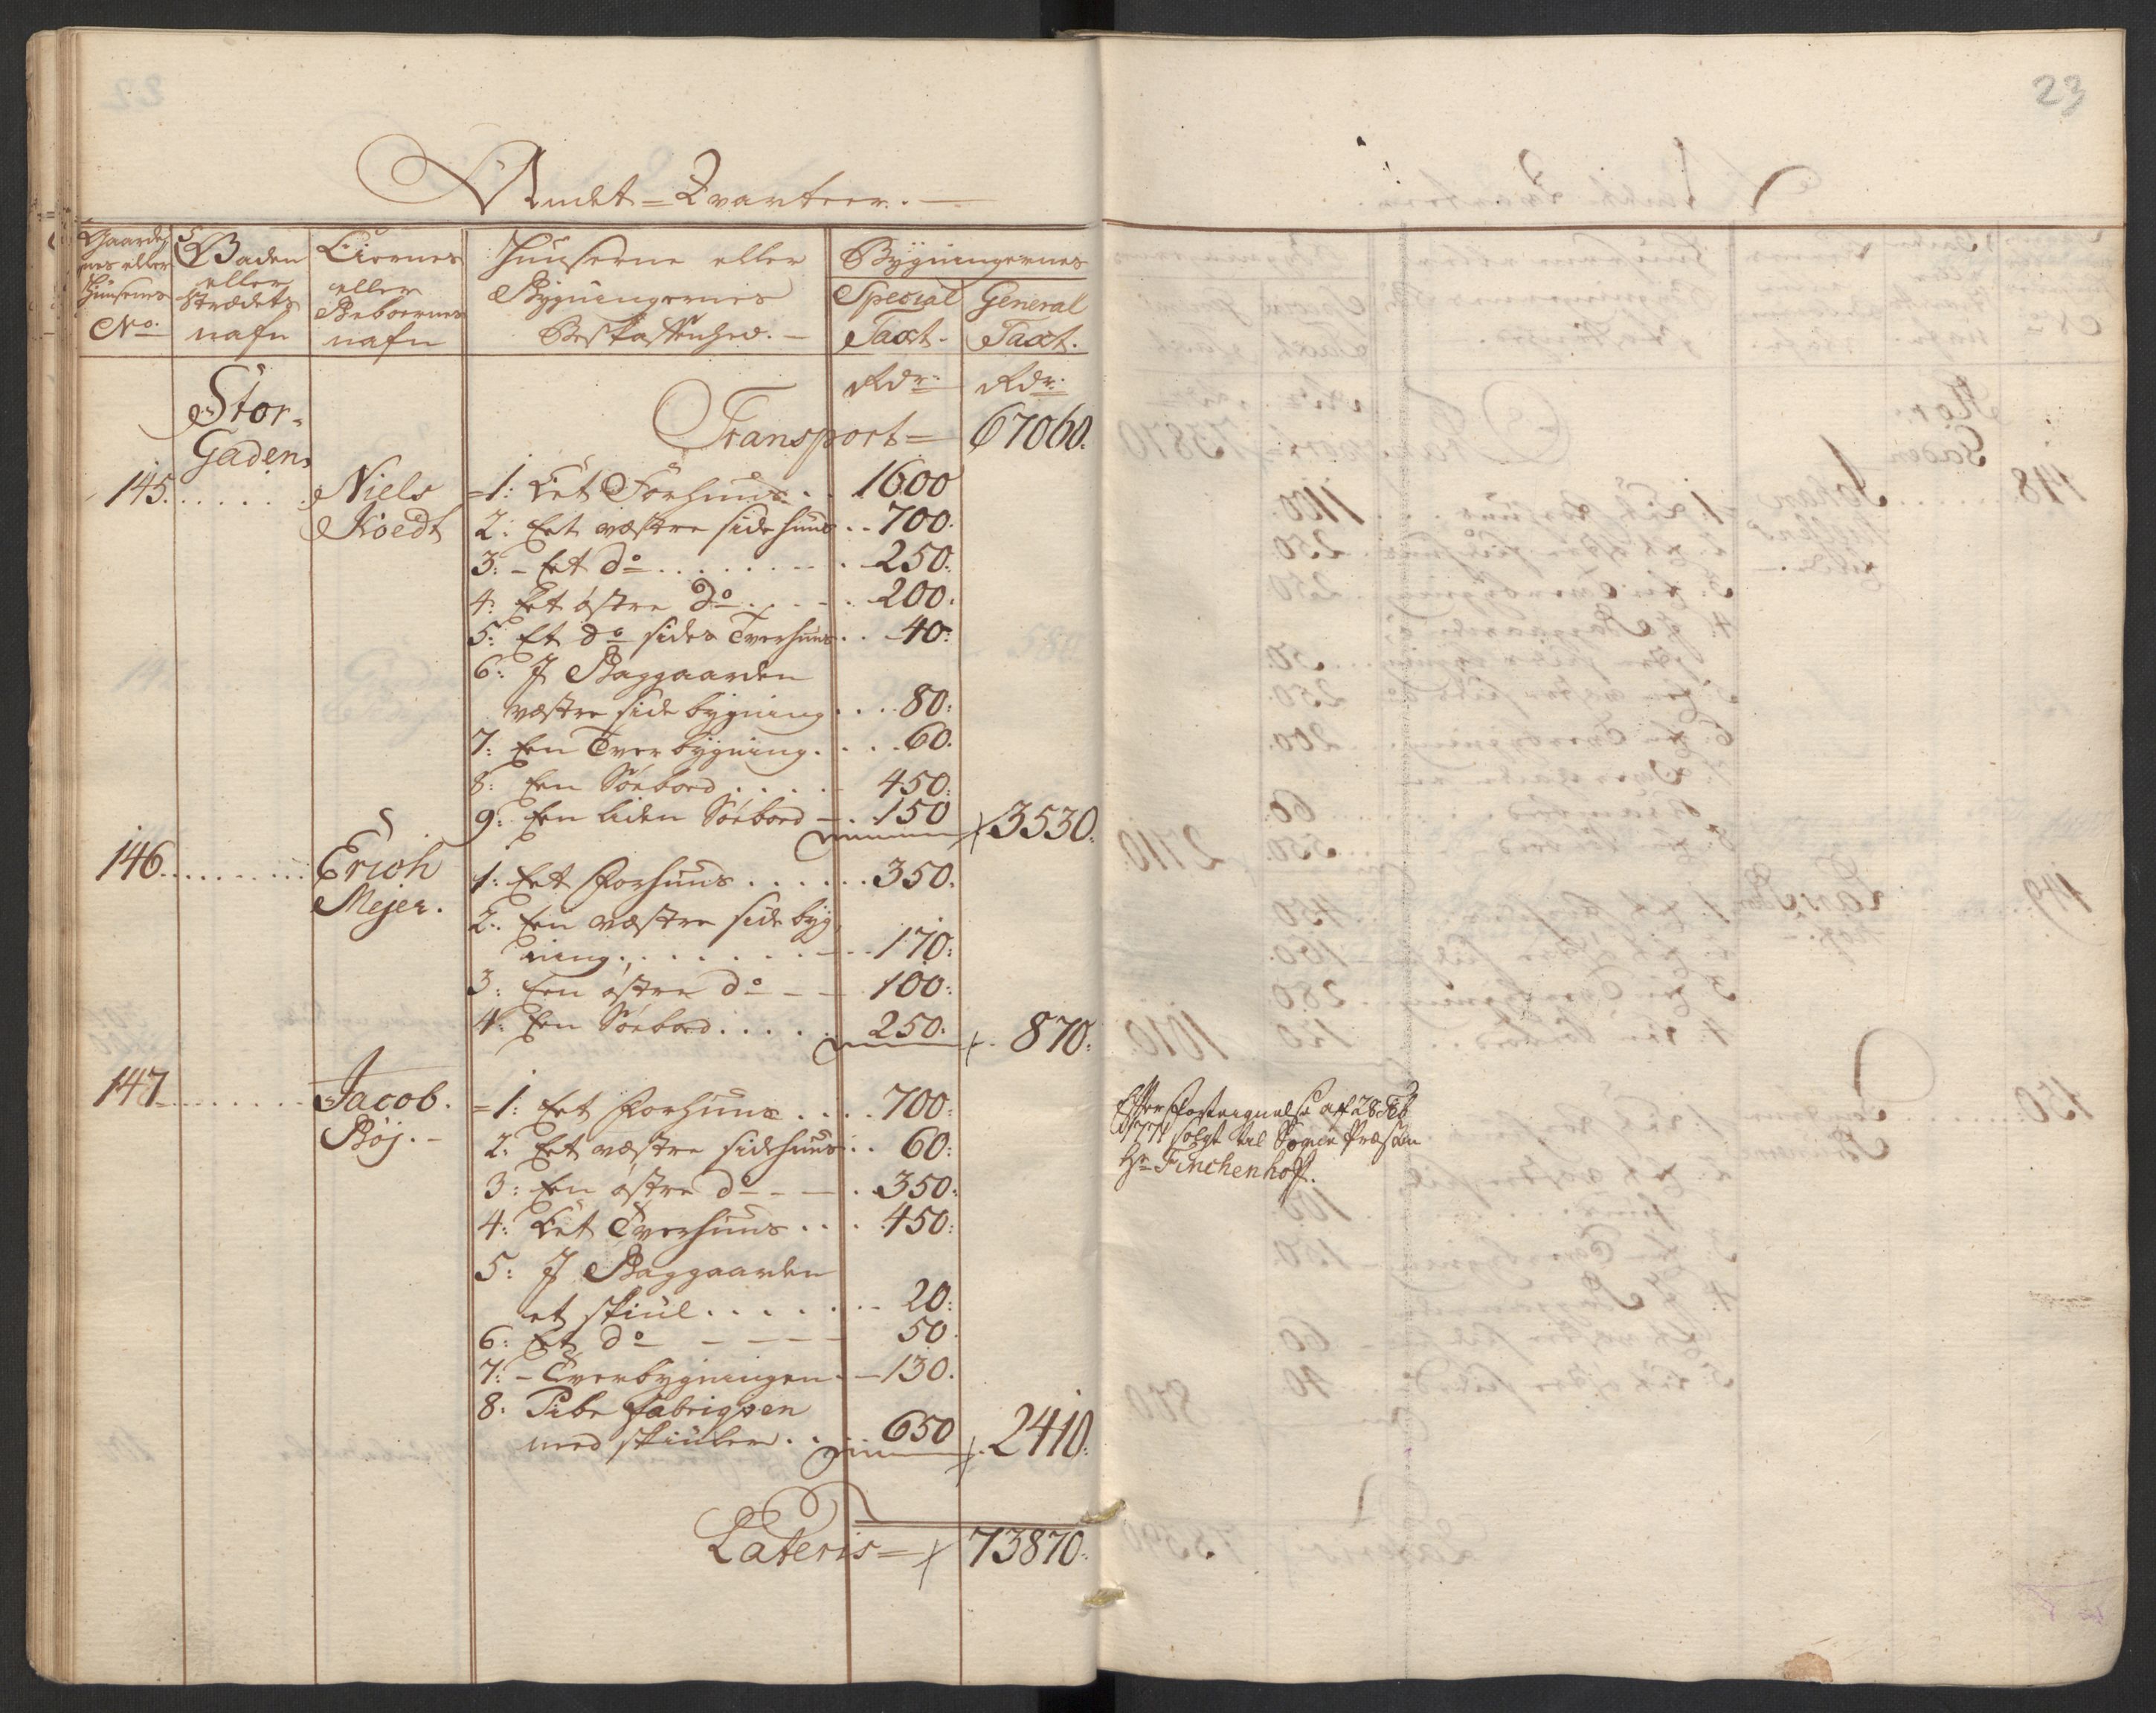 23
Andet = Qvarteer. —
Gaarde,
nes eller
Huusenes
No.
Gaden
eller
Strædets
nafn
Eiernes
eller
Beboernes
nafn
Huuserne eller
Bygningernes
Beskaffenhed. —
Bygningernes
Special
Taxt.
General
Taxt.
Rdr: Rdr:
Stor-
Gaden,
Transport = 67060.
145. . . . . . . Niels =1: Eet Forhuus . . 1600
Koedt 2: Eet væstre sidehuus . . 700.
3: - Eet do . . . . . . . 250.
4: Eet østre do . . . . 200.
5: Et do sides Tverhuus . . 40:
6: J Baggaarden
væstre side bygning . . . 80:
7: Een Tverbygning . . . . 60.
8: Een Søebod . . . . 450:
9: Een liden Søebod — . 150 3530:
146. . . . . . . . Erich 1: Eet Forhuus . . . . . . 350.
Mejer. 2: Een væstre side byg
ning . . . . . . . . 170:
3: Een østre do - — 100:
4: Een Søebod . . . . . 250: 870:
147. . . . . . . Jacob. =1: Eet Forhuus . . . . 700:
Bøj. - 2: Eet væstre sidehuus . . 60:
3: Een østre do - - — . 350:
4: Eet Tverhuus . . . 450:
5: J Baggaarden
et skiul . . . . . . . 20:
6: Et do - - - - - 50.
7: - Tverbygningen . - 130.
8: Pibe fabriqven
med skiuler . . 650 2410:
Lateris = 73870.
Efter Forteignelse aff 28 Feb
1771 solgt til Sogne Præsten
Hr Finchenhoff.